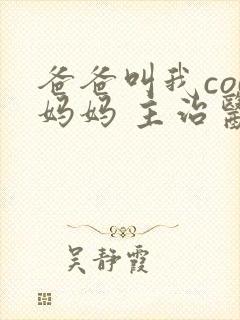 爸爸叫我co
妈妈 主治醫
吴静霞